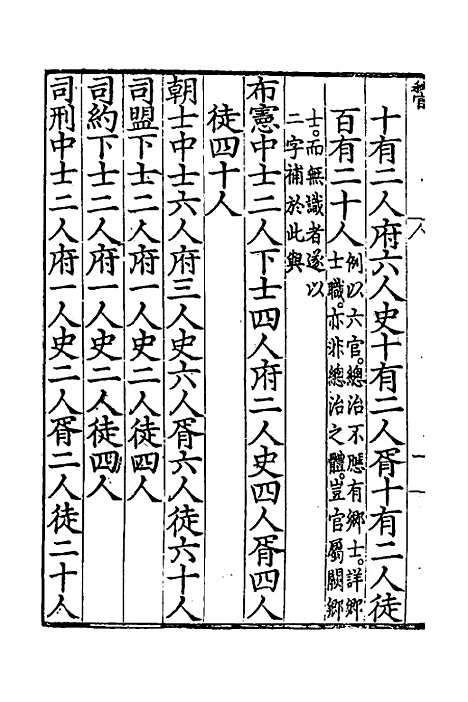 秋官
十有二人府六人史十有二人胥十有二人徒
百有二十人例以六官總治不應有鄉士詳鄉
士職亦非總治之體豈官屬闕鄉
士而無識者遂以
二字補於此與
布憲中士二人下士四人府二人史四人胥四人
徒四十人
朝士中士六人府三人史六人胥六人徒六十人
司盟下士二人府一人史二人徒四人
司約下士二人府一人史二人徒四人
司刑中士二人府一人史二人胥二人徒二十人